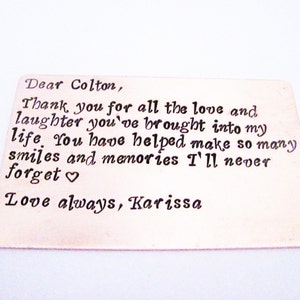 Dear Colton,
Thank you for all the love and
laughter you've brought into my
life. You have helped make so many
smiles and memories I'll never
forget ♡
Love always, Karissa